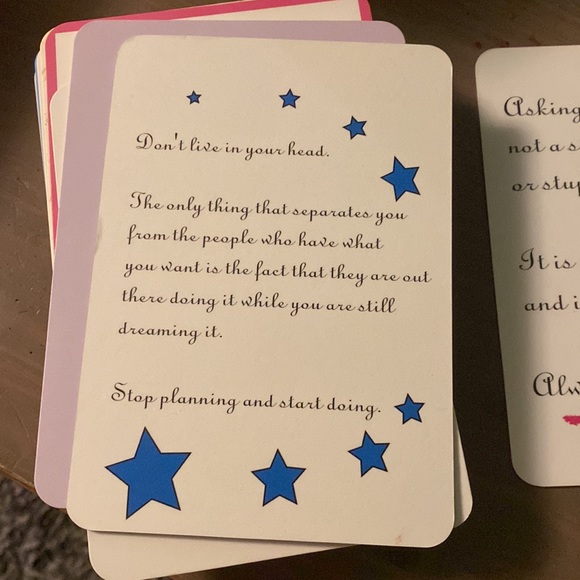 Don't live in your head.
The only thing that separates you
from the people who have what
you want is the fact that they are out
there doing it while you are still
dreaming it.
Stop planning and start doing.
Asking
not a
It is
and